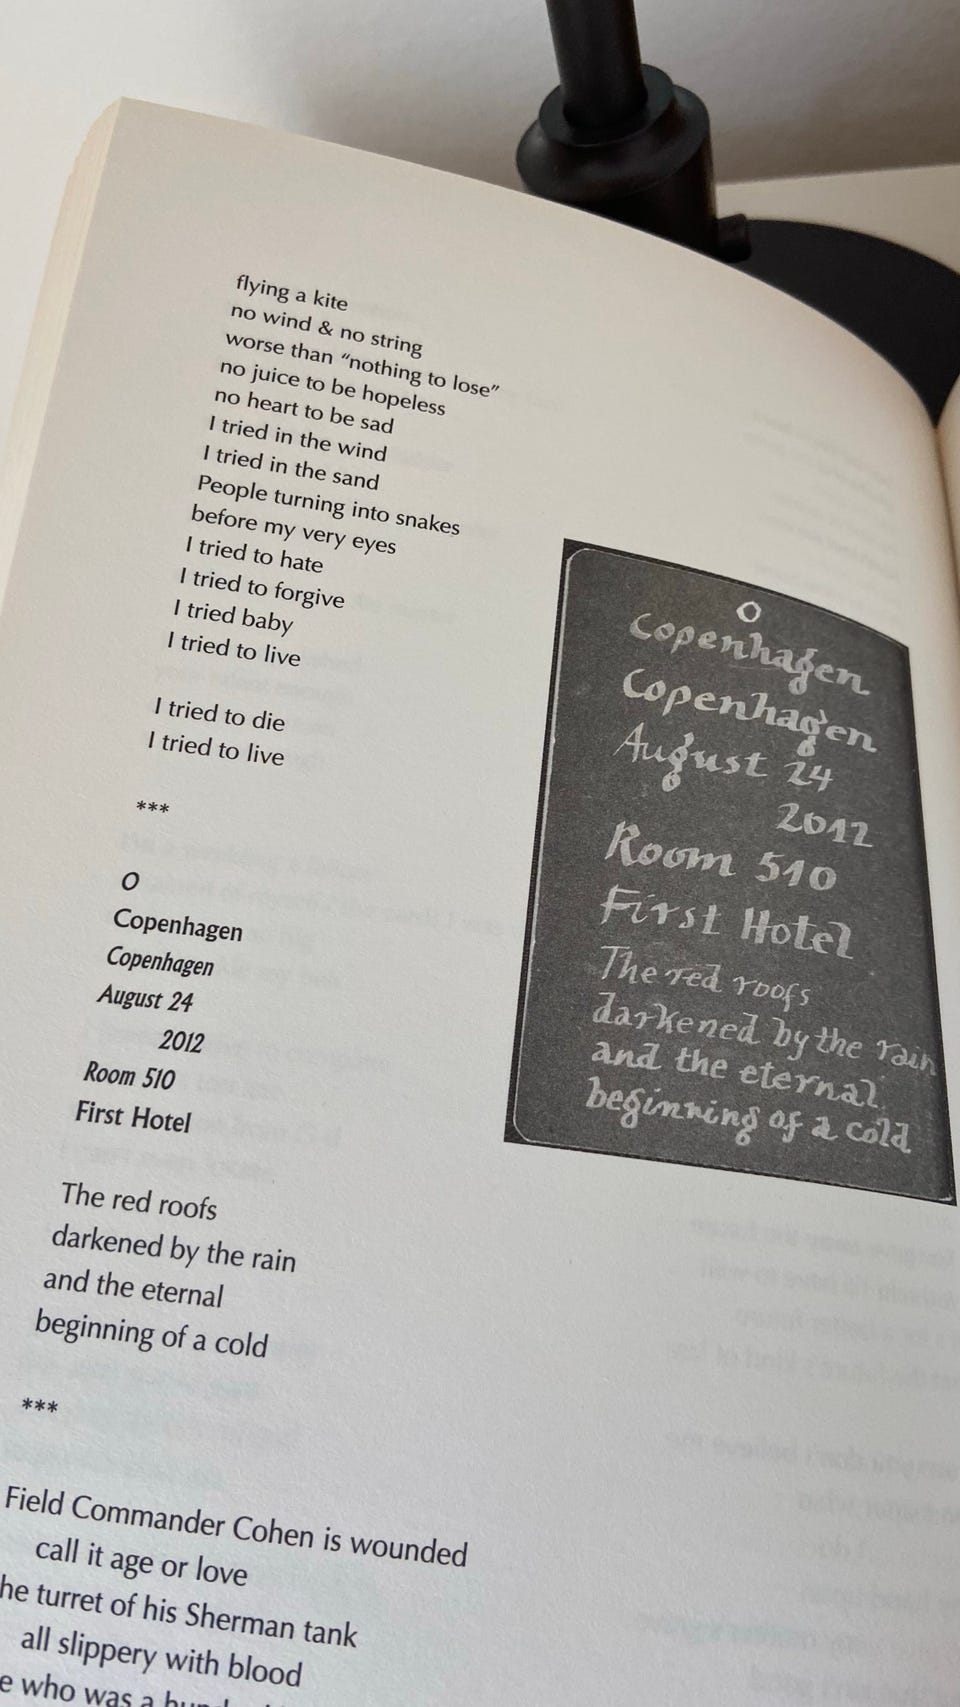 flying a kite
no wind & no string
worse than “nothing to lose”
no juice to be hopeless
no heart to be sad
I tried in the wind
I tried in the sand
People turning into snakes
before my very eyes
I tried to hate
I tried to forgive
I tried baby
I tried to live
I tried to die
I tried to live
***
O
Copenhagen
Copenhagen
August 24
2012
Room 510
First Hotel
The red roofs
darkened by the rain
and the eternal
beginning of a cold
***
Field Commander Cohen is wounded
call it age or love
he turret of his Sherman tank
all slippery with blood
e who was a
O
Copenhagen
Copenhagen
August 24
2012
Room 510
First Hotel
The red roofs
darkened by the rain
and the eternal
beginning of a cold